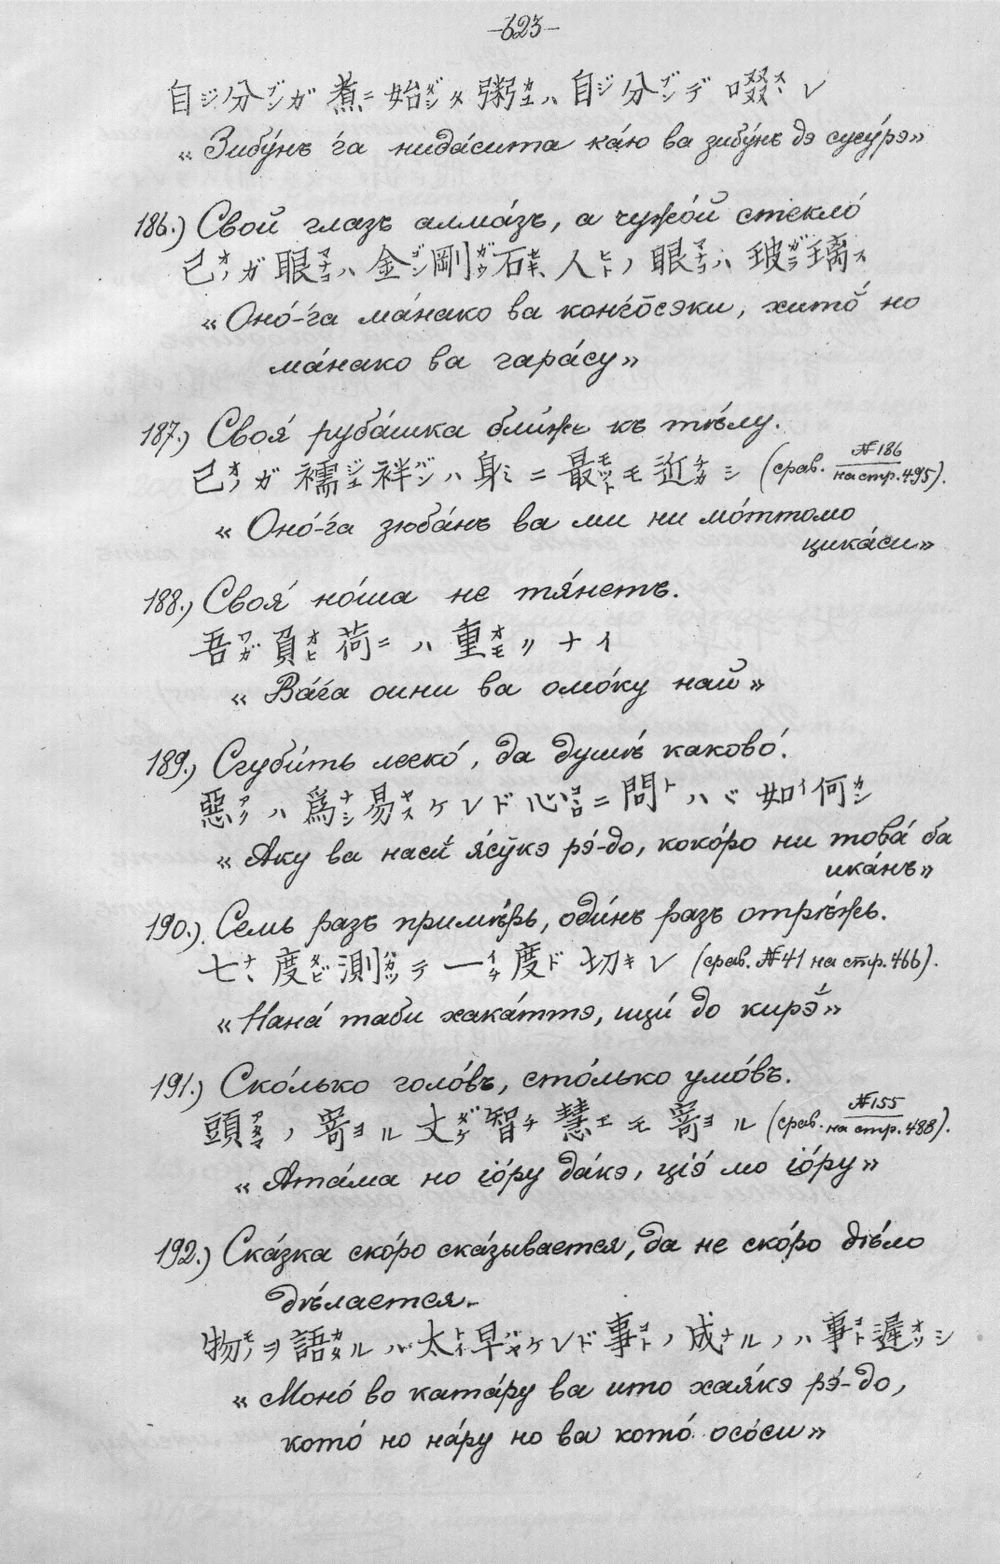 –623–
自ジ分ブンガ煮ニ始ダシタ粥カユハ自ジ分ブンデ啜スヽレ
«Зибу́нъ г̇а нида́сита ка́ю ва зибу́нъ дэ сусу́рэ»
186.) Свой глазъ алма́зъ, а чужо́й стекло́
己オノガ眼マナコハ金コン剛ガウ石セキ、人ヒトノ眼マナコハ玻ガラ璃ス
«Оно́-г̇а ма́нако ва конго̄сэки, хито̆́ но
ма́нако ва гара́су»
187.) Своя́ руба́шка бли́же къ тѣ́лу.
己オノガ襦ジユ袢バンハ身ミニ最モツトモ近チカシ (срав. №186 на стр. 495).
«Оно́-г̇а зюба́нъ ва ми ни мо́ттомо
цика́си»
188.) Своя́ но́ша не тя́нетъ.
吾ワガ負オヒ荷ニハ重オモクナイ
«Ва́г̇а оини ва омо́ку най»
189.) Сгуби́ть легко́, да душѣ́ каково́!
惡アクハ爲ナシ易ヤスケレドモ心コヽロニ問トハバ如イ何カン
«Аку ва наси́ я́сӯкэ рэ́-до, коко́ро ни това́ ба
ика́нъ»
190.) Семь разъ примѣ́рь, оди́нъ разъ отрѣ́жь.
七ナヽ度タビ測ハカツテ一イチ度ド切キレ (срав. №41 на стр. 466).
«Нана́ таби хака́ттэ, ици́ до кирэ̆́»
191.) Ско́лько голо́въ, сто́лько умо́въ.
頭アタマノ寄ヨル丈ダケ智チ慧エモ寄ヨル (срав. №155 на стр. 488).
«Ата́ма но іо́ру да́кэ, ціэ́ мо іо́ру»
192.) Ска́зка ско́ро ска́зывается, да не ско́ро дѣ́ло
дѣ́лается.
物モノヲ語カタルハ太イト早ハヤケレド事コトノ成ナルノハ事コト遲オソシ
«Моно́ во ката́ру ва ито хая́кэ рэ́-до,
кото́ но на́ру но ва кото́ осо́си»